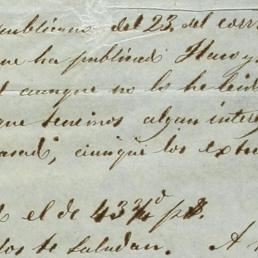 publicano del 23 del corr
ue ha publicad Haro y
t aunque no lo he leid
que tenemos algun inter
asad, aunque los extr
el de 43¾d p$.
dos te saludan. A